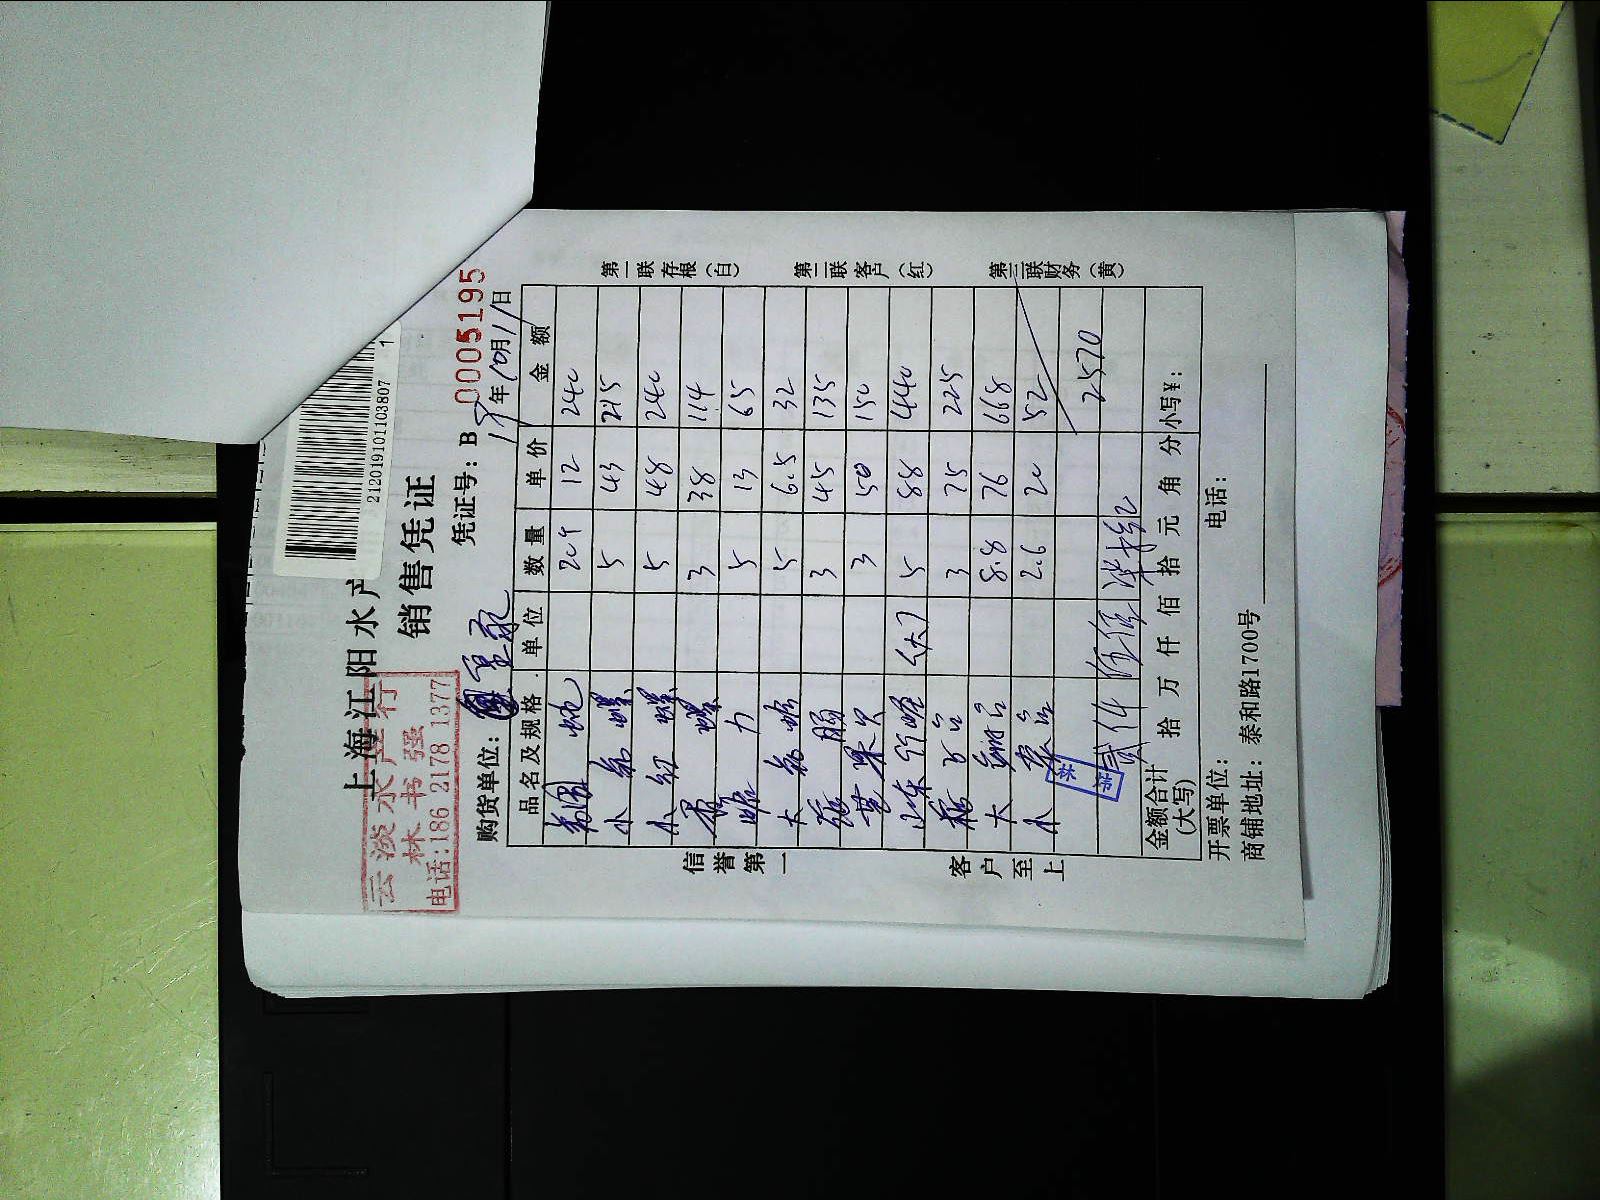 212019101103807 1
上海江阳水产
销售凭证
云淡水产行
林书强
电话:186 2178 1377
凭证号: B 0005195
购货单位:
19年10月11日
品名及规格 单位 数量 单价 金额
20 12 240
小 螺 5 43 215
小红螺 5 48 240
香螺 3 38 114
5 13 65
大 5 6.5 32
3 45 135
3 50 150
(大) 5 88 440
3 75 225
大 8.8 76 668
小 2.6 20 52
2570
贰仟伍佰柒拾
金额合计(大写) 拾 万 仟 佰 拾 元 角 分 小写¥:
开票单位: 电话:
商铺地址: 泰和路1700号
信誉第一
客户至上
第一联存根(白)
第二联客户(红)
第三联财务(黄)